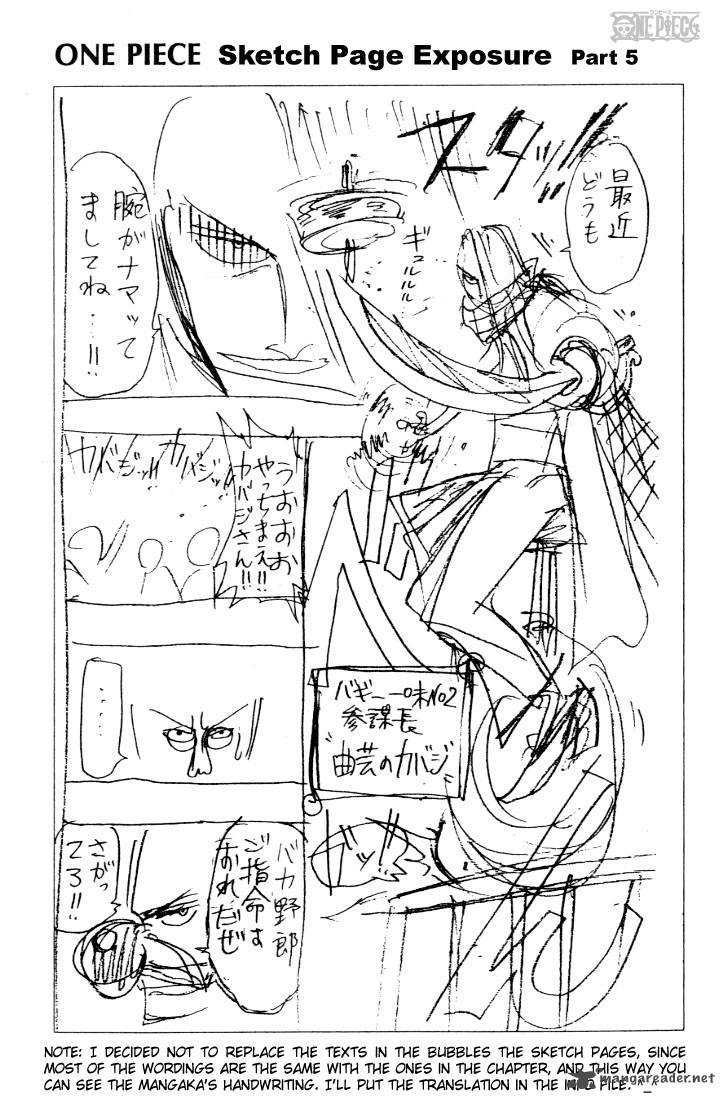 ワンピース
ONE PIECE
ONE PIECE Sketch Page Exposure Part 5
最近
どうも
スタッ!!
ギュルルル
腕がナマッて
ましてね‥!!
カバジッ!! カバジッ!!
うおおお
やっちまえ!!
カバジさん!!
‥‥
バギー一味No2
参謀長
"曲芸のカバジ"
バカ野郎
ご指命は
おれだぜ
さがっ
てろ!!
NOTE: I DECIDED NOT TO REPLACE THE TEXTS IN THE BUBBLES THE SKETCH PAGES, SINCE
MOST OF THE WORDINGS ARE THE SAME WITH THE ONES IN THE CHAPTER, AND THIS WAY YOU
CAN SEE THE MANGAKA'S HANDWRITING. I'LL PUT THE TRANSLATION IN THE INFO FILE. ^_^
mangareader.net